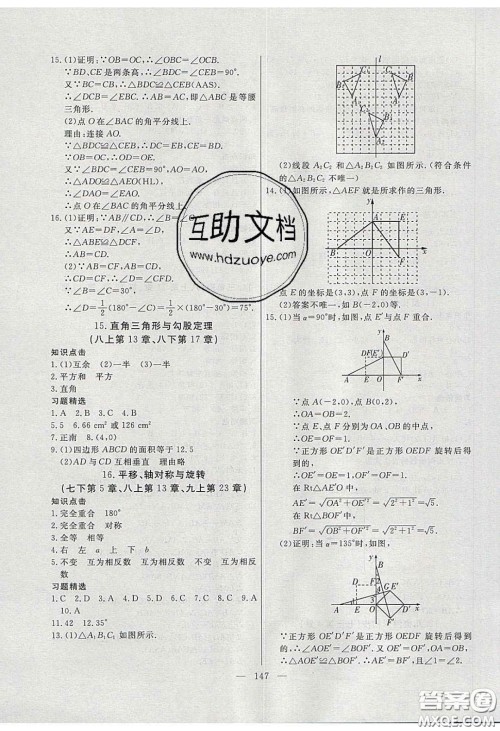 15.(1)证明:∵OB=OC,∴∠OBC=∠OCB.
∵BD、CE是两条高,∴∠BDC=∠CEB=90°.
又∵BC=BC,∴△BDC≌△CEB(AAS).
∴∠DBC=∠ECB,∴AB=AC,即△ABC是等腰
三角形.
(2)点O在∠BAC的角平分线上.
理由:连接AO.
∵△BDC≌△CEB,∴DC=EB.
∵OB=OC,∴OD=OE.
又∵∠BDC=∠CEB=90°,
∴△ADO≌△AEO(HL).
∴∠DAO=∠EAO.
∴点O在∠BAC的角平分线上.
16.(1)证明:∵AB∥CD,∴∠B=∠C.
又∵AE=DF,
∴△ABE≌
∴AB=CD.
(2)∵AB=CF,AB=CD,
∴CD=CF,∵∠B=∠C=30°,
∴∠D=1/2(180°-∠C)=1/2(180°-30°)=75°.
15.直角三角形与勾股定理
(八上第13章、八下第17章)
知识点击
1.(1)互余 (2)一半 (3)一半
2.平方和 平方
3.直角
习题精选
1.A 2.B 3.C 4.A
5.5 6.66 cm²或126 cm²
7.正南 8.(4,0)
9.(1)四边形ABCD的面积等于12.5
(2)AD与CD互相垂直 理由略
16.平移、轴对称与旋转
(七下第5章、八上第13章、九上第23章)
知识点击
1.完全重合 180°
2.完全重合 对称
3.全等 相等
4.右 左 a 上 下 b
5.不变 互为相反数 互为相反数 不变 互为相反数
互为相反数
习题精选
1.C 2.D 3.A 4.D 5.C 6.D 7.C 8.D 9.C
10.A
11.42 12.35°
13.(1)△A₁B₁C₁如图所示.
(2)线段A₂C₂和△A₂B₂C₂如图所示.(符合条件
的△A₂B₂C₂不唯一)
14.(1)如图所示,△AEF就是所求作的三角形.
点E的坐标是(3,3),点F的坐标是(3,-1).
(2)答案不唯一,如B(-2,0).
15.(1)当α=90°时,如图,点E'与点F重合.
∵点A(-2,0),点B(0,2),
∴OA=OB=2.
∵正方形OE'D'F'是正方形OEDF旋转后得
到的,∴OE'=OE=1,OF'=OF=1.
在Rt△AE'O中,
AE'=√OA²+OE'²=√2²+1²=√5.
在Rt△BOF'中,
BF'=√OB²+OF'²=√2²+1²=√5.
(2)证明:当α=135°时,如图.
∵正方形OE'D'F'是正方形OEDF旋转后得到
的,∴∠AOE'=∠BOF',OE'=OF'.又OA=OB,
∴△AOE'≌△BOF',∴AE'=BF',且∠1=∠2.
— 147 —
互助文档
www.hdzuoye.com
答案圈
MXQE.COM